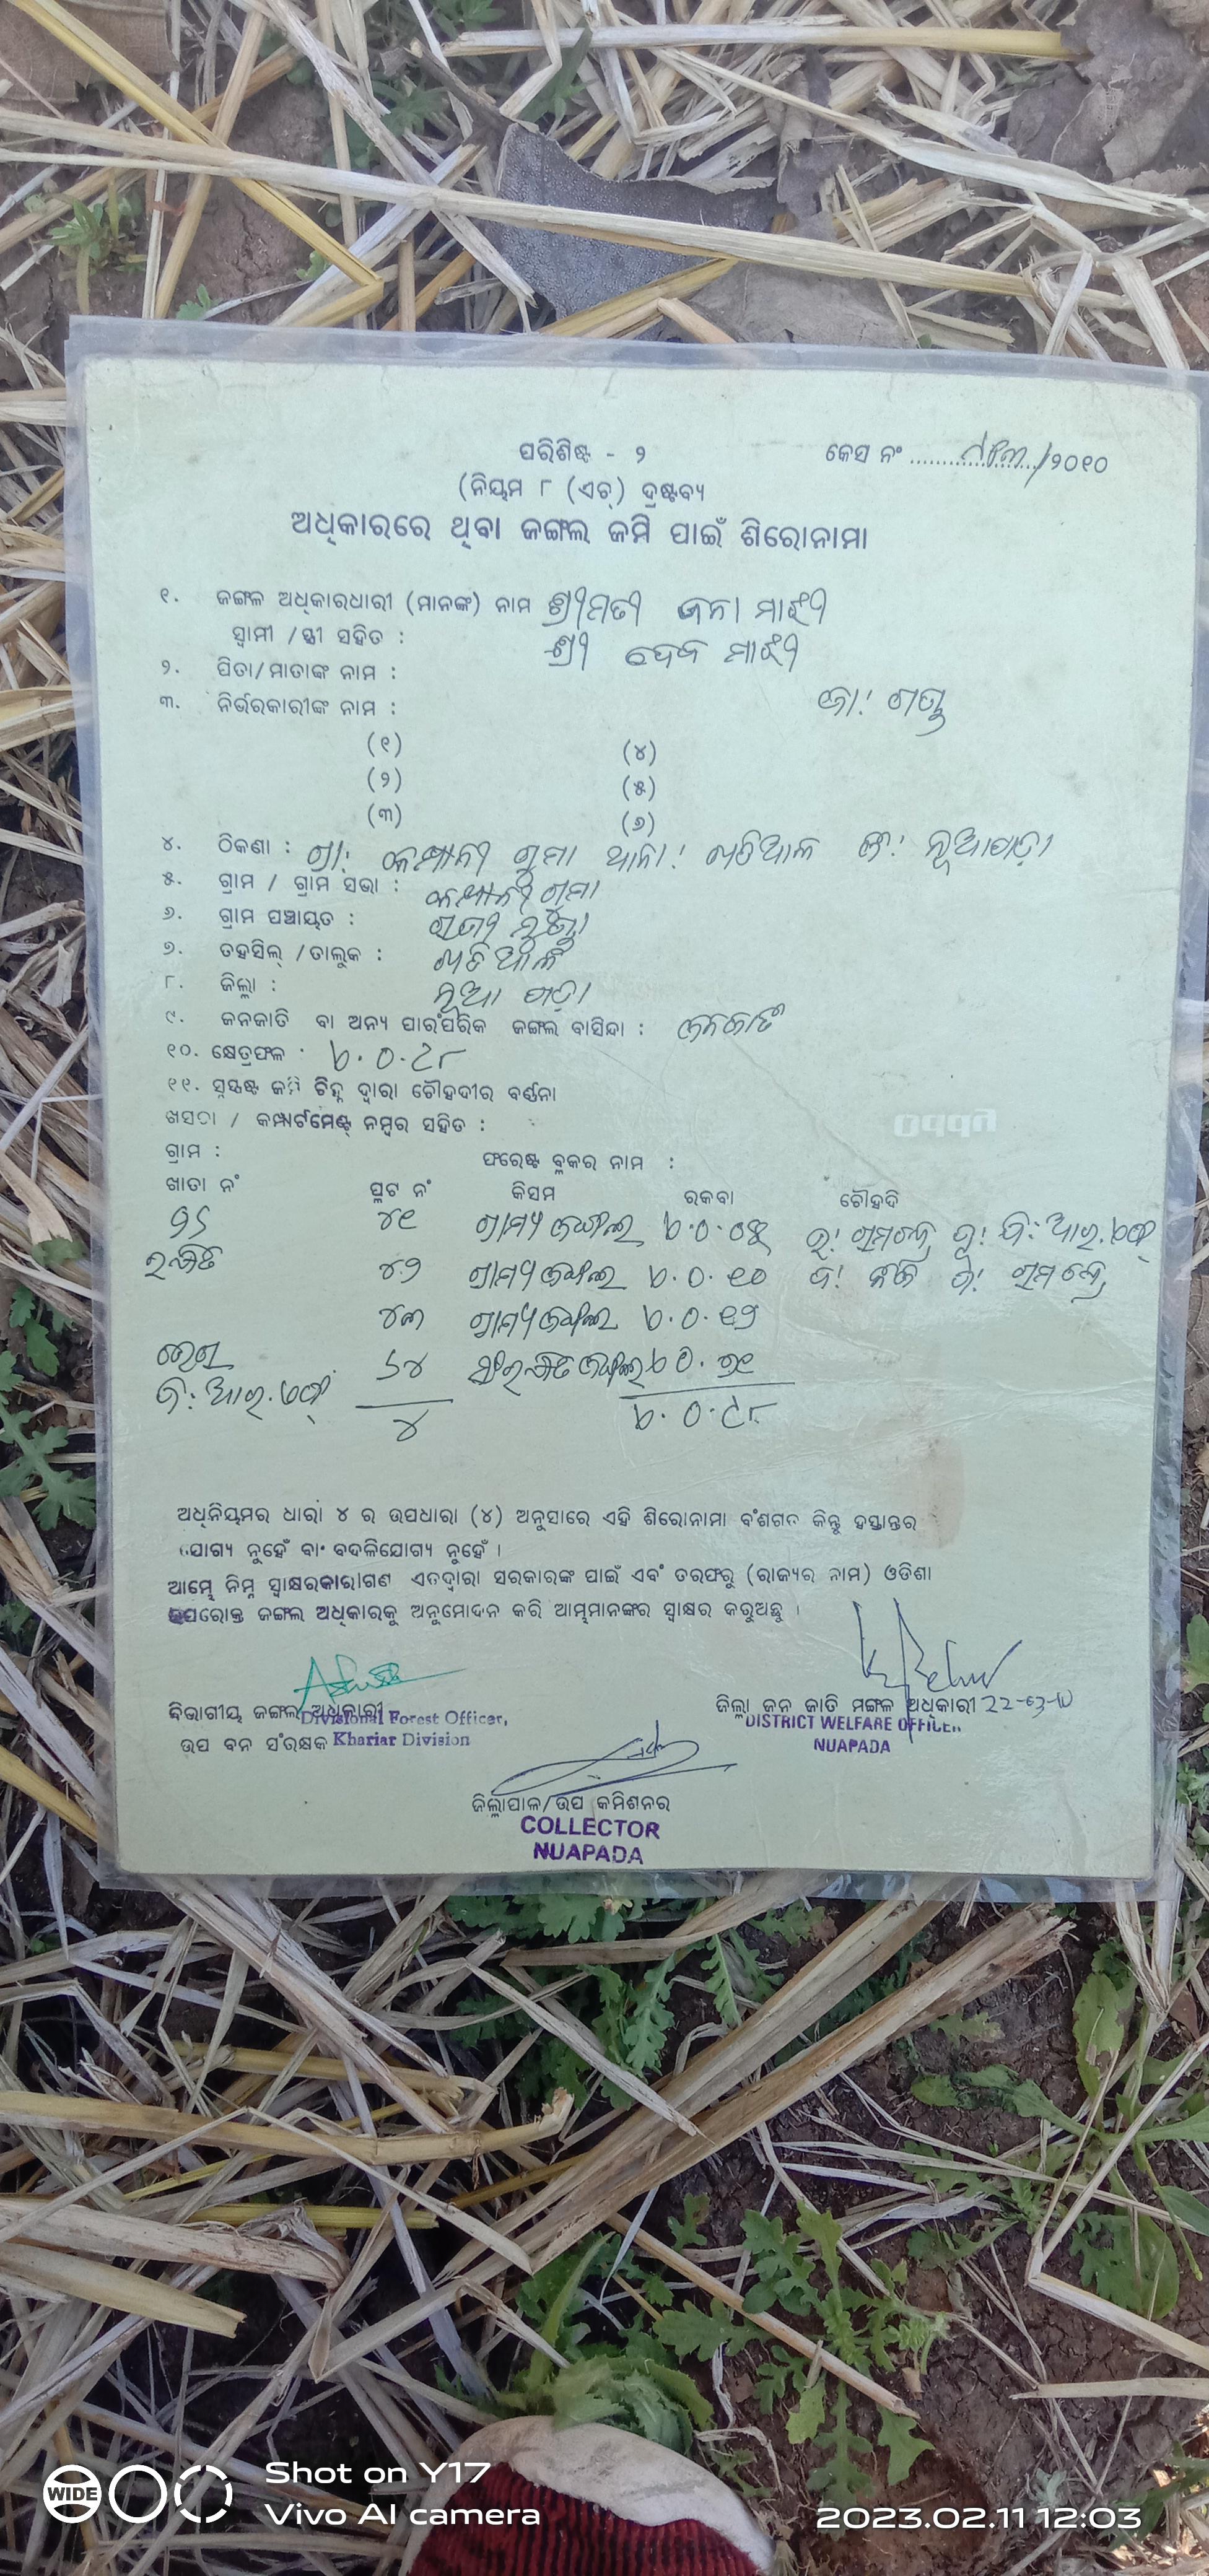 ପରିଶିଷ୍ଟ - ୨
କେସ ନଂ ..................../୨୦୧୦
(ନିୟମ ୮ (ଏଚ୍) ଦ୍ରଷ୍ଟବ୍ୟ
ଅଧିକାରରେ ଥିବା ଜଙ୍ଗଲ ଜମି ପାଇଁ ଶିରୋନାମା
୧. ଜଙ୍ଗଳ ଅଧିକାରଧାରୀ (ମାନଙ୍କ) ନାମ ଶ୍ରୀମତୀ ଜନା ମାଝୀ
ସ୍ୱାମୀ /ସ୍ତ୍ରୀ ସହିତ : ଶ୍ରୀ ଦେବ ମାଝୀ
୨. ପିତା/ମାତାଙ୍କ ନାମ :
୩. ନିର୍ଭରକାରୀଙ୍କ ନାମ : ଜା: ଗଣ୍ଡ
(୧) (୪)
(୨) (୫)
(୩) (୬)
୪. ଠିକଣା : ଗ୍ରା: ଗୁମା ଥାନା: ଖଡିଆଳ ଜି: ନୂଆପଡ଼ା
୫. ଗ୍ରାମ / ଗ୍ରାମ ସଭା : ଗୁମା
୬. ଗ୍ରାମ ପଞ୍ଚାୟତ :
୭. ତହସିଲ୍ /ତାଲୁକ : ଖଡିଆଳ
୮. ଜିଲ୍ଲା : ନୂଆ ପଡ଼ା
୯. ଜନଜାତି ବା ଅନ୍ୟ ପାରଂପରିକ ଜଙ୍ଗଲ ବାସିନ୍ଦା : ଜନଜାତି
୧୦. କ୍ଷେତ୍ରଫଳ : ୦.୯୮
୧୧. ସୁସ୍ପଷ୍ଟ ଜମି ଚିହ୍ନ ଦ୍ୱାରା ଚୌହଦୀର ବର୍ଣ୍ଣନା
ଖସଡା / କମ୍ପାର୍ଟମେଣ୍ଟ୍ ନମ୍ବର ସହିତ :
ଗ୍ରାମ : ଫରେଷ୍ଟ ବ୍ଲକର ନାମ :
ଖାତା ନଂ ପ୍ଲଟ ନଂ କିସମ ରକବା ଚୌହଦି
୪୧ ଗ୍ରାମ୍ୟ ଜଙ୍ଗଲ
ରକ୍ଷିତ ୪୨ ଗ୍ରାମ୍ୟ ଜଙ୍ଗଲ ୦.୧୦
୪୩ ଗ୍ରାମ୍ୟ ଜଙ୍ଗଲ ୦.୧୨
ସଂରକ୍ଷିତ ଜଙ୍ଗଲ
୪ ୦.୯୮
ଅଧିନିୟମର ଧାରା ୪ ର ଉପଧାରା (୪) ଅନୁସାରେ ଏହି ଶିରୋନାମା ବଂଶଗତ କିନ୍ତୁ ହସ୍ତାନ୍ତର
ଯୋଗ୍ୟ ନୁହେଁ ବା ବଦଳିଯୋଗ୍ୟ ନୁହେଁ ।
ଆମ୍ଭେ ନିମ୍ନ ସ୍ୱାକ୍ଷରକାରୀଗଣ ଏତଦ୍ୱାରା ସରକାରଙ୍କ ପାଇଁ ଏବଂ ତରଫରୁ (ରାଜ୍ୟର ନାମ) ଓଡିଶା
ଉପରୋକ୍ତ ଜଙ୍ଗଲ ଅଧିକାରକୁ ଅନୁମୋଦନ କରି ଆମ୍ଭମାନଙ୍କର ସ୍ୱାକ୍ଷର କରୁଅଛୁ ।
ବିଭାଗୀୟ ଜଙ୍ଗଲ ଅଧିକାରୀ
Divisional Forest Officer,
ଉପ ବନ ସଂରକ୍ଷକ Khariar Division
ଜିଲ୍ଲା ଜନ ଜାତି ମଙ୍ଗଳ ଅଧିକାରୀ 22-03-10
DISTRICT WELFARE OFFICER
NUAPADA
ଜିଲ୍ଲାପାଳ/ଉପ କମିଶନର
COLLECTOR
NUAPADA
WIDE
Shot on Y17
Vivo AI camera
2023.02.11 12:03